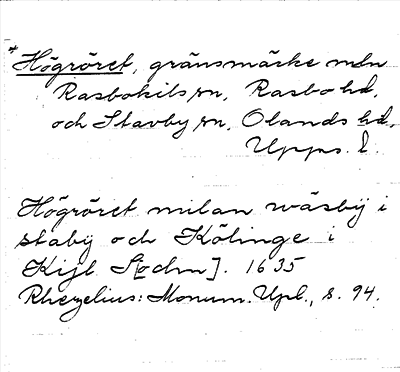 * Högröret, gränsmärke mln
Rasbokils sn, Rasbo hd,
och Stavby sn, Olands hd,
Upps. l.
Högröret milan wäsbÿ i
stabÿ och Kölinge i
Kijl S[ochn]. 1635
Rhezelius: Monum. Upl., s. 94.